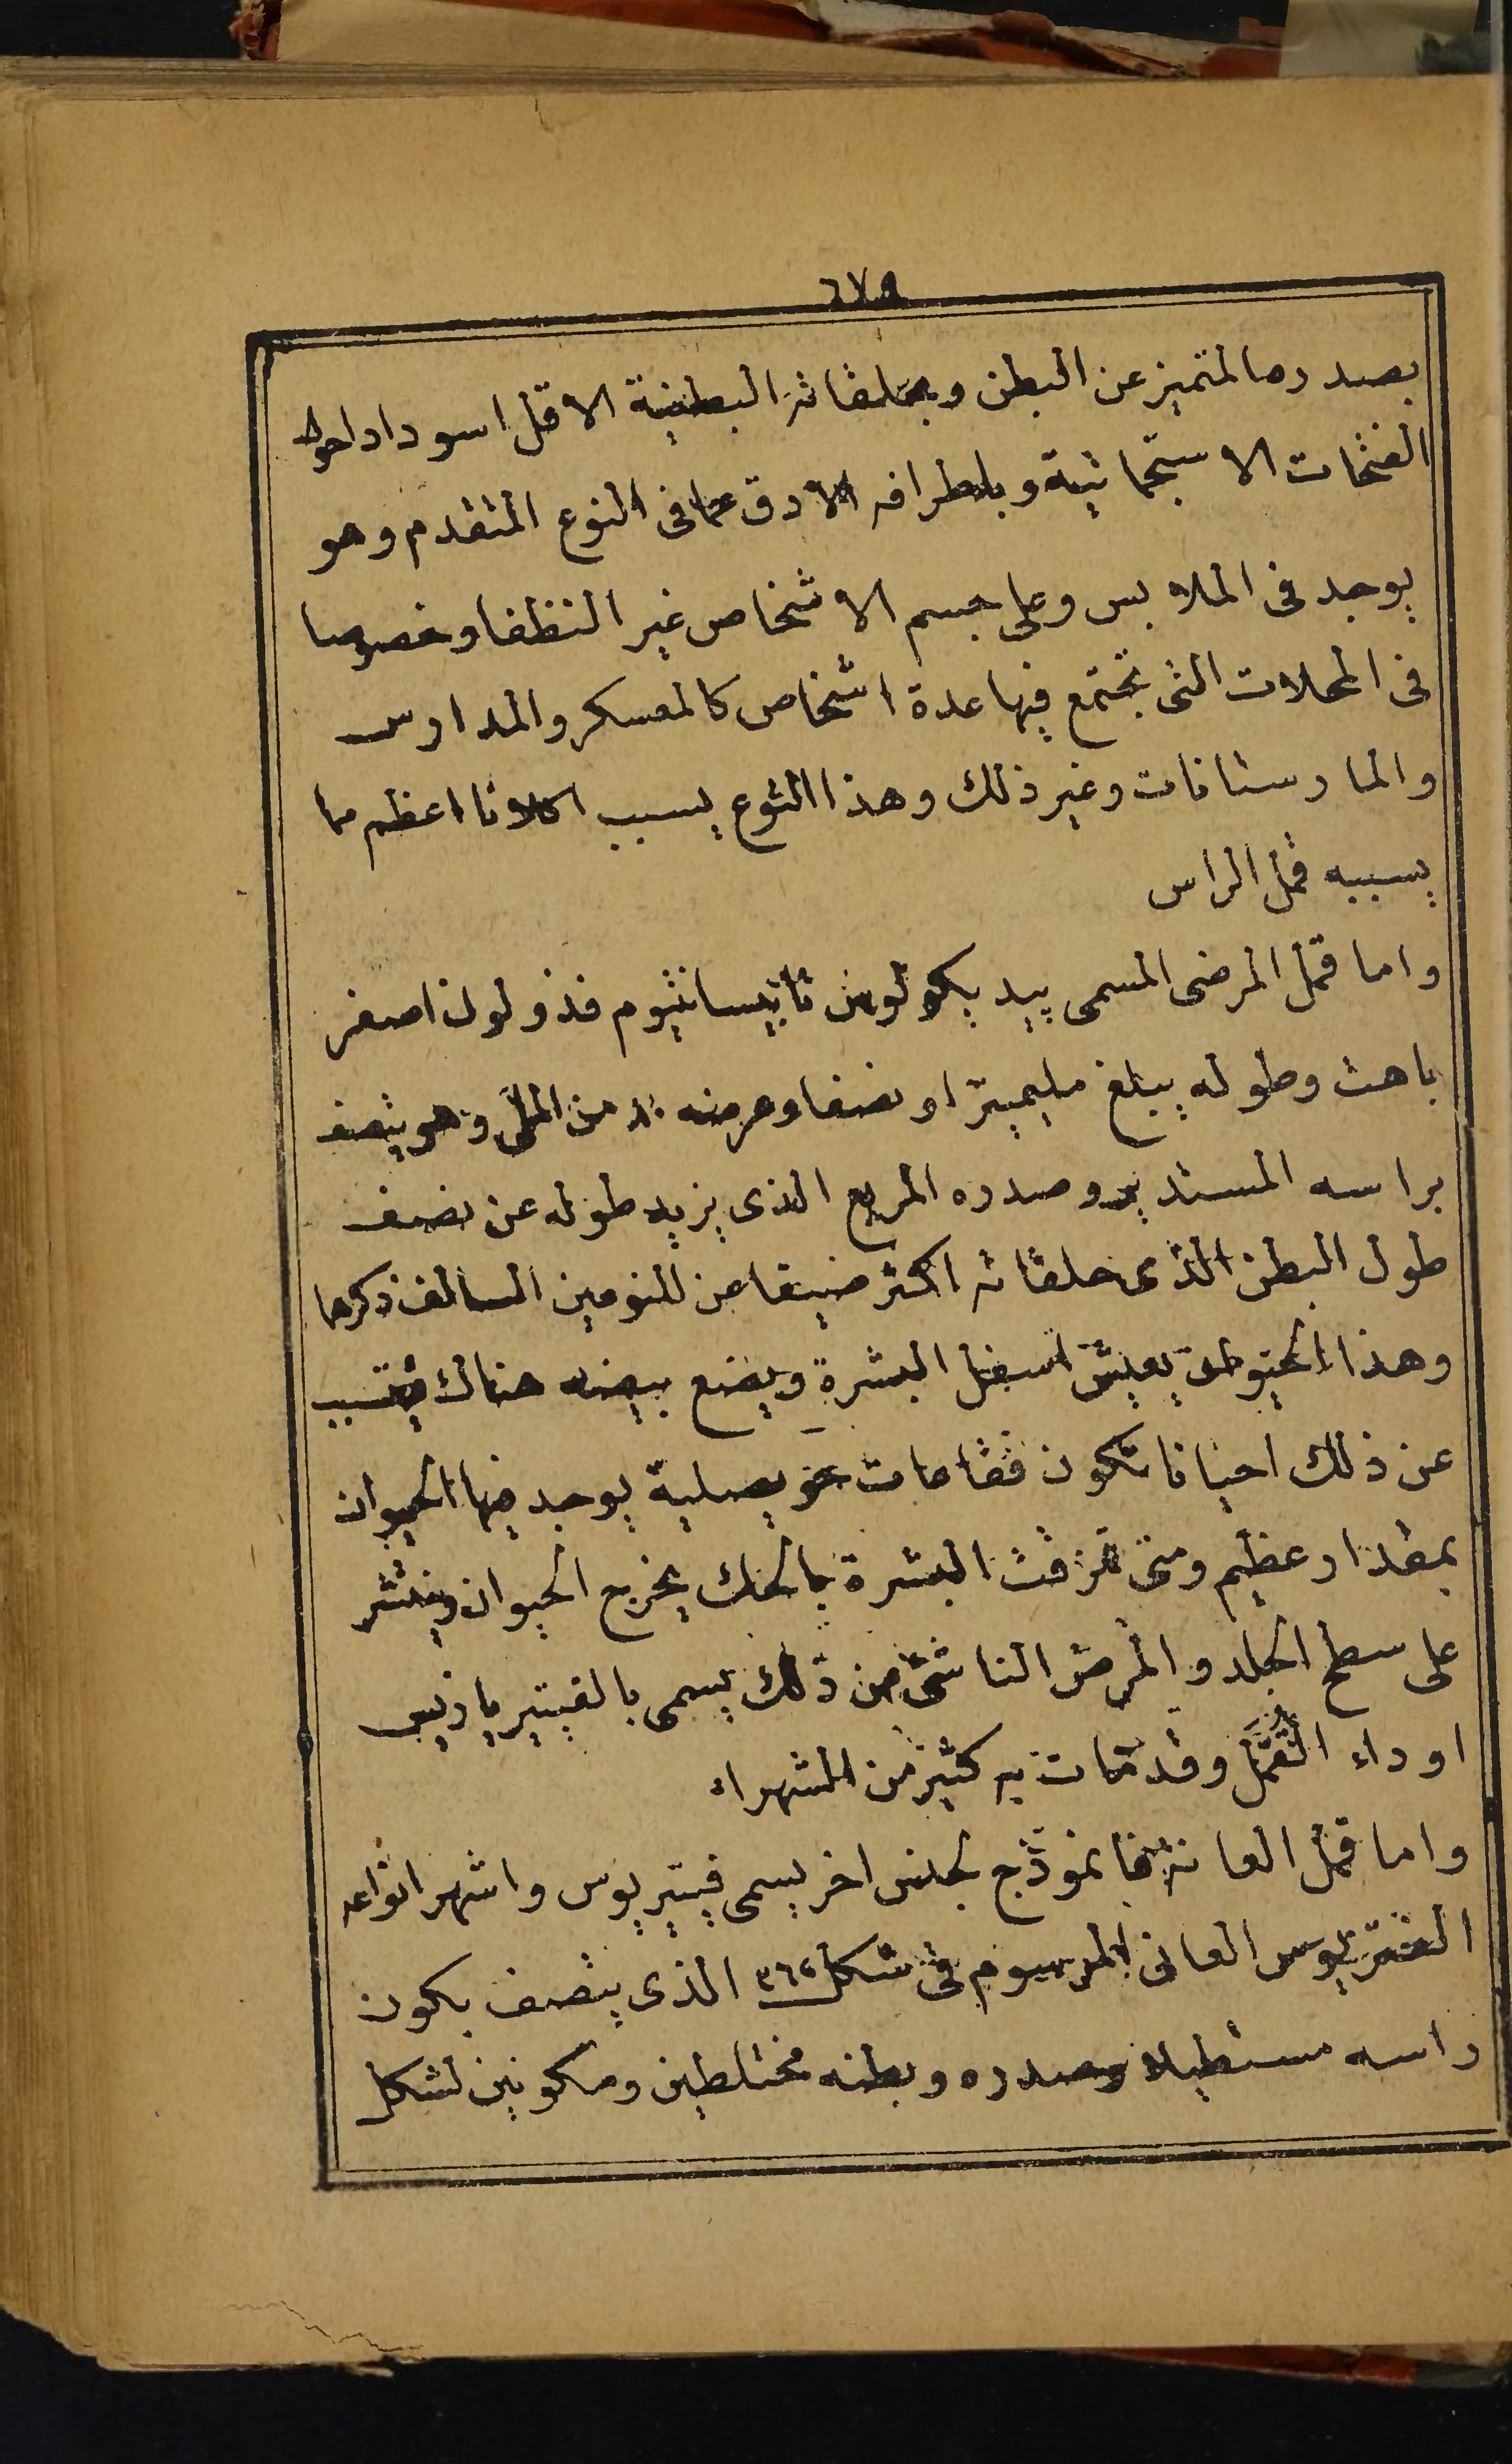 ٦٧٥
بصدرها المتميز عن البطن وبحلقاته البطنية الاقل اسودادا حول
الفتحات الاستجماتية وباطرافه الادق عما فى النوع المتقدم وهو
يوجد فى الملابس وعلى جسم الاشخاص غير النظفا وخصوصا
فى المحلات التى تجتمع فيها عدة اشخاص كالمعسكر والمدارس
والمارستانات وغير ذلك وهذا النوع يسبب اكلانا اعظم مما
يسببه قمل الراس
واما قمل المرضى المسمى پيديكولوس تابيسانتيوم فذو لون اصفر
باهت وطوله يبلغ مليميترا ونصفا وعرضه من الملى وهو يتصف
براسه المستدير وصدره المربع الذى يزيد طوله عن نصف
طول البطن الذى حلقاته اكثر ضيقا عن النوعين السالف ذكرها
وهذا الحيوان يعيش اسفل البشرة ويضع بيضه هناك فيتسبب
عن ذلك احيانا تكون فقاعات حويصلية يوجد فيها الحيوان
بمقدار عظيم ومتى تمزقت البشرة بالحك يخرج الحيوان وينتشر
على سطح الجلد والمرض الناشئ من ذلك يسمى بالفتيرياذيس
او داء القمل وقد مات به كثير من المشهراء
واما قمل العانة فانموذج لجنس اخر يسمى فيتيريوس واشهر انواعه
الفتريوس العانى المرسوم فى شكل ٣٦٢ الذى يتصف بكون
راسه مستطيلا وصدره وبطنه مختلطين ومكونين لشكل